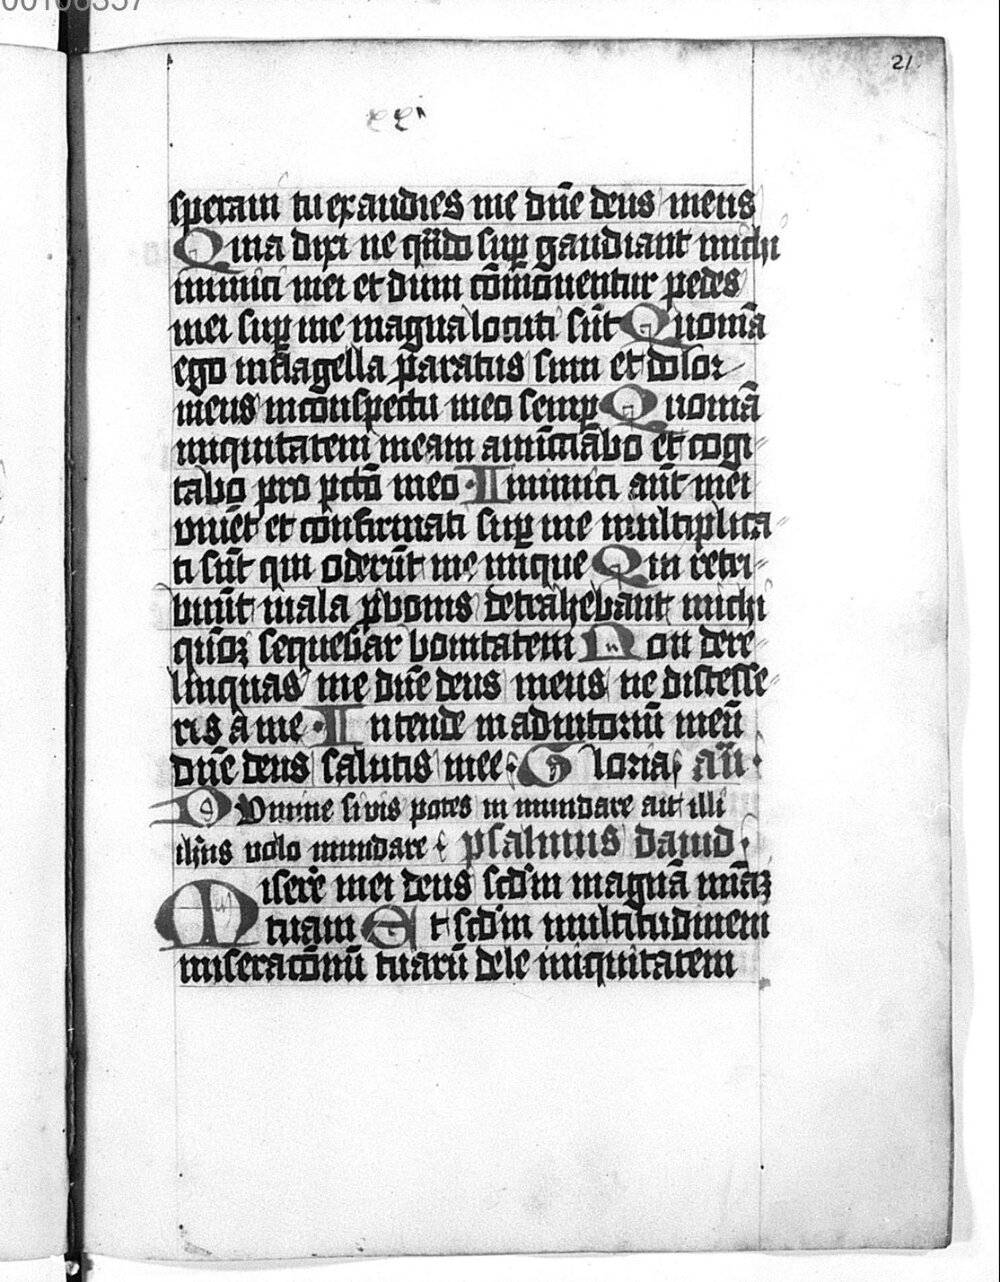 00106357
21
xxi
speraui tu exaudies me dn̄e deus meus
Quia dixi ne qn̄do sup̱ gaudiant michi
inimici mei et dum cōmouentur pedes
mei sup̱ me magna locuti sūt Quoniā
ego in flagella paratus sum et dolor
meus in conspectu meo semp̱ Quoniā
iniquitatem meam annūciabo et cogi
tabo pro pctō meo · Inimici aūt mei
viuēt et confirmati sup̱ me multiplica
ti sūt qui oderūt me inique Qui retri
buūt mala ꝓ bonis detrahebant michi
qūoꝫ sequebar bonitatem Non dere
linquas me dn̄e deus meus ne discesse
ris a me · Intende in adiutoriū meū
dn̄e deus salutis mee · Gloria an̄
Domine si vis potes m mundare ait illi
ih̄us uolo mundare psalmus dauid
Miserē mei deus scd̄m magnā miāꝫ
tuam Et scd̄m multitudinem
miseracōnū tuarū dele iniquitatem